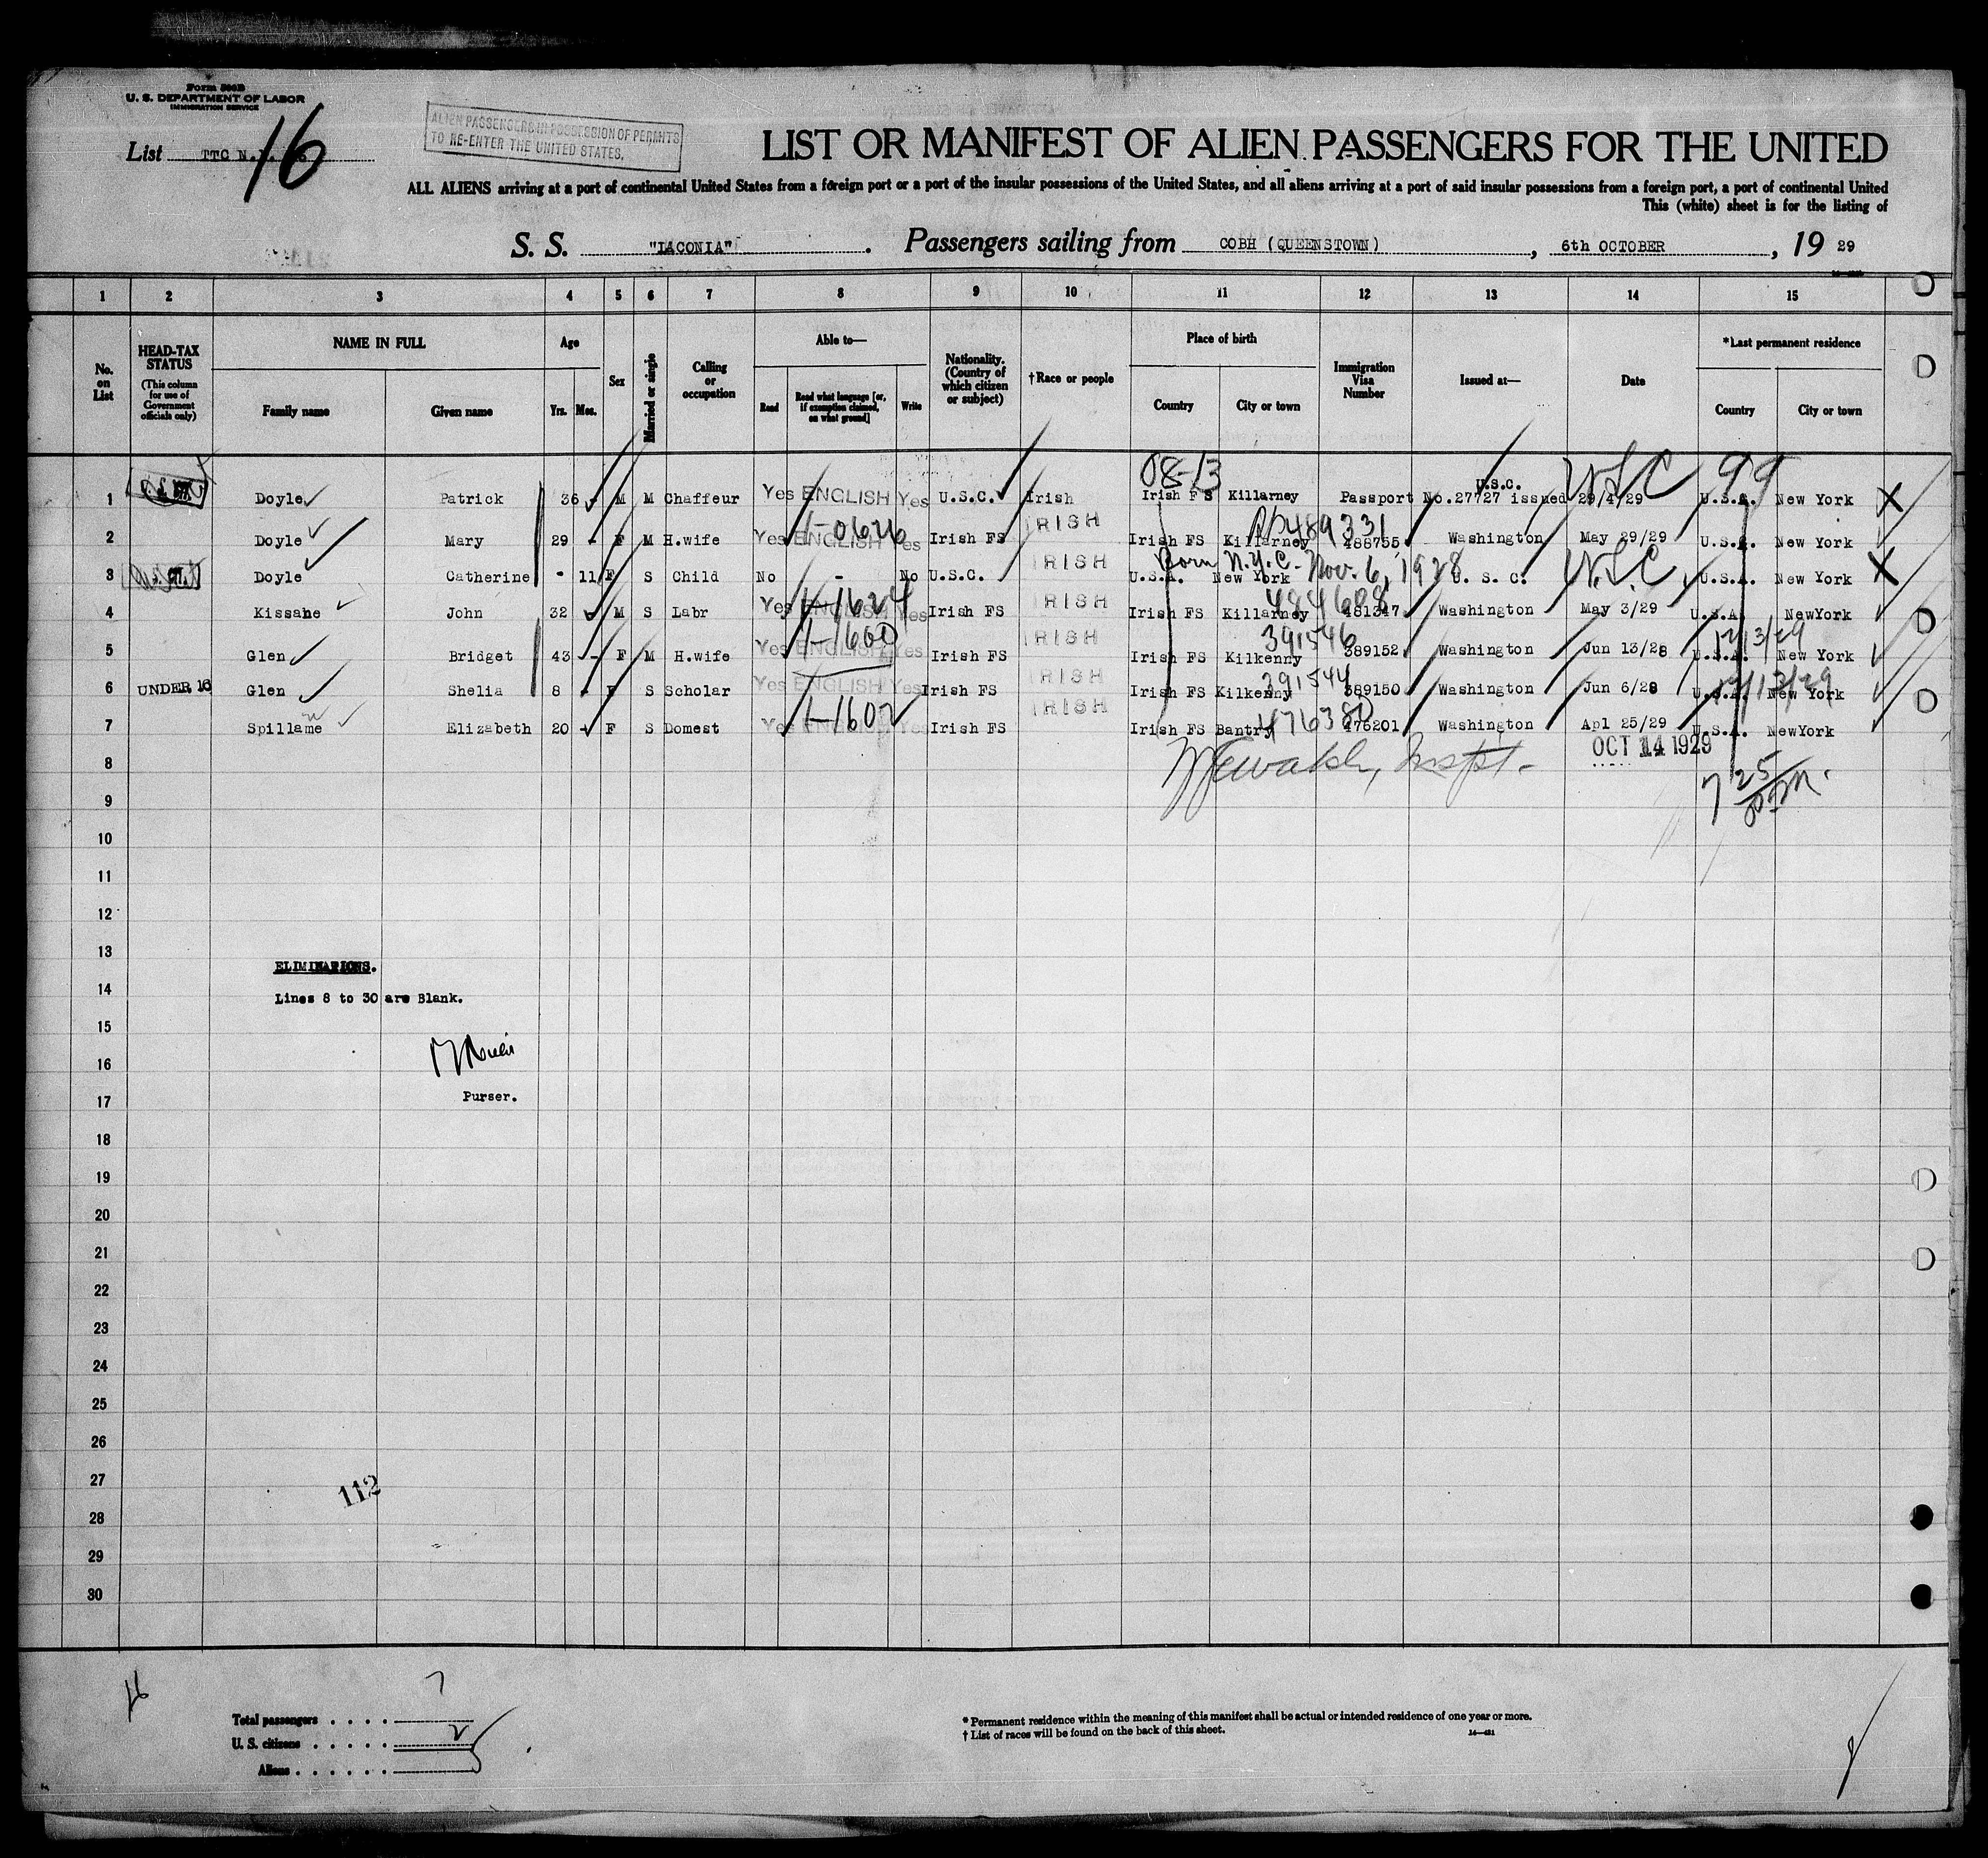 Form 500B
U. S. DEPARTMENT OF LABOR
IMMIGRATION SERVICE
List TTC N.Y. 16
ALIEN PASSENGERS IN POSSESSION OF PERMITS
TO RE-ENTER THE UNITED STATES.
LIST OR MANIFEST OF ALIEN PASSENGERS FOR THE UNITED
ALL ALIENS arriving at a port of continental United States from a foreign port or a port of the insular possessions of the United States, and all aliens arriving at a port of said insular possessions from a foreign port, a port of continental United
This (white) sheet is for the listing of
S. S. "LACONIA". Passengers sailing from COBH (QUEENSTOWN), 6th OCTOBER, 19 29
1 2 3 4 5 6 7 8 9 10 11 12 13 14 15
No. on List
HEAD-TAX STATUS (This column for use of Government officials only)
NAME IN FULL
Family name Given name
Age
Yrs. Mos.
Sex
Married or single
Calling or occupation
Able to—
Read Read what language [or, if exemption claimed, on what ground] Write
Nationality. (Country of which citizen or subject)
†Race or people
Place of birth
Country City or town
Immigration Visa Number
Issued at—
Date
*Last permanent residence
Country City or town
08-13 U.S.C. USC 99
1 Doyle Patrick 36 - M M Chaffeur Yes ENGLISH Yes U.S.C. Irish Irish F S Killarney Passport No.27727 issued 29/4/29 U.S.A. New York X
1-0626 489331
2 Doyle Mary 29 - F M H.wife Yes ENGLISH Yes Irish FS IRISH Irish FS Killarney 488755 Washington May 29/29 U.S.A. New York
Born N.Y.C. - Nov. 6, 1928 U.S.C.
3 Doyle Catherine - 11 F S Child No - No U.S.C. IRISH U.S.A. New York U. S. C. U.S.A. New York X
1-1624 484608
4 Kissane John 32 M S Labr Yes ENGLISH Yes Irish FS IRISH Irish FS Killarney 481347 Washington May 3/29 U.S.A. NewYork
1-1600 391546 12/13/29
5 Glen Bridget 43 - F M H.wife Yes ENGLISH Yes Irish FS IRISH Irish FS Kilkenny 389152 Washington Jun 13/28 U.S.A. New York
391544 12/13/29
6 UNDER 16 Glen Shelia 8 - F S Scholar Yes ENGLISH Yes Irish FS IRISH Irish FS Kilkenny 389150 Washington Jun 6/28 U.S.A. New York
1-1602 476380
7 Spillame Elizabeth 20 - F S Domest Yes ENGLISH Yes Irish FS IRISH Irish FS Bantry 476201 Washington Apl 25/29 U.S.A. NewYork
OCT 14 1929
8
9
10
11
12
13
ELIMINATIONS.
14
Lines 8 to 30 are Blank.
15
16
17
Purser.
18
19
20
21
22
23
24
25
26
27
112
28
29
30
16
7
Total passengers
2
U. S. citizens
Aliens
* Permanent residence within the meaning of this manifest shall be actual or intended residence of one year or more.
† List of races will be found on the back of this sheet.
14—421